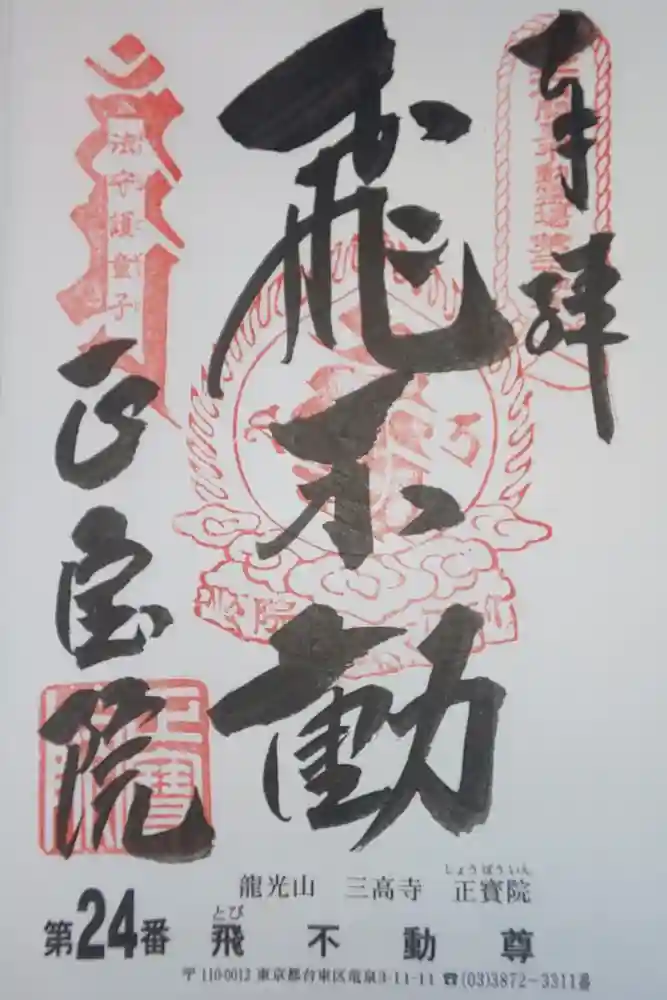 奉拝
飛不動
正宝院
法守護童子
正寶院
龍光山 三高寺 正寶院
しょうぼういん
第24番 飛不動尊
とび
〒110-0012 東京都台東区竜泉3-11-11 ☎(03)3872-3311番